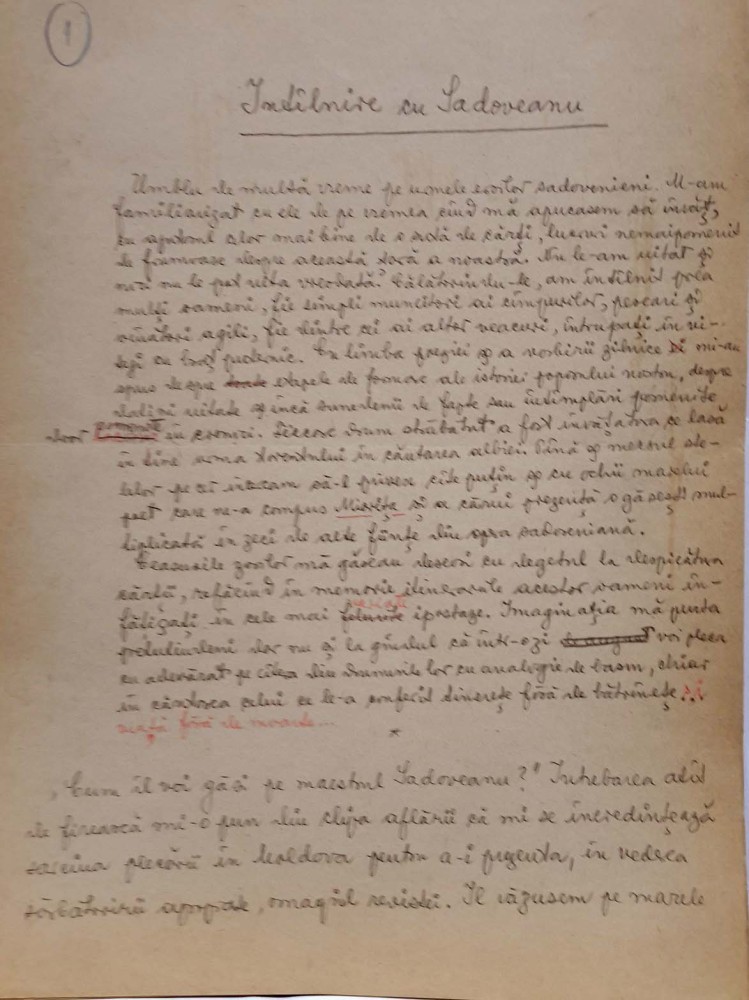 1
Intîlnire cu Sadoveanu
Umblu de multă vreme pe urmele eroilor sadovenieni. M-am
familiarizat cu ele de pe vremea cînd mă apucasem să învăț,
cu ajutorul celor mai bine de o sută de cărți, lucruri nemaipomenit
de frumoase despre această țară a noastră. Nu le-am uitat și
nici nu le pot uita vreodată. Călătorindu-le, am întîlnit prea
mulți oameni, fie simpli muncitori ai cîmpurilor, pescari și
vînători agili, fie dintre cei ai altor veacuri, întrupați în vi-
teji cu braț puternic. In limba poeziei și a vorbirii zilnice mi-au
spus despre toate etapele de formare ale istoriei poporului nostru, despre
datini uitate și încă sumedenii de fapte sau întîmplări pomenite
doar în cronici. Fiecare drum străbătut a fost învățătura ce lasă
în tine urma torentului în căutarea albiei. Pînă și mersul ste-
lelor pe cer încercam să-l privesc cîte puțin și cu ochii marelui
poet care ne-a compus Miorița și a cărui prezență o găsești mul-
tiplicată în zeci de alte ființe din opera sadoveniană.
Ceasurile zorilor mă găseau deseori cu degetul la despicătura
cărții, refăcînd în memorie itinerariile acestor oameni în-
fățișați în cele mai felurite ipostaze. Imaginația mă purta
pretutindeni dar nu și la gîndul că într-o zi de august voi pleca
cu adevărat pe cîteva din drumurile lor cu analogie de basm, chiar
în căutarea celui ce le-a conferit tinerețe fără de bătrînețe și
viață fără de moarte...
*
„Cum îl voi găsi pe maestrul Sadoveanu?" Intrebarea atît
de firească mi-o pun din clipa aflării că mi se încredințează
sarcina plecării în Moldova pentru a-i prezenta, în vederea
sărbătoririi apropiate, omagiul revistei. Il văzusem pe marele